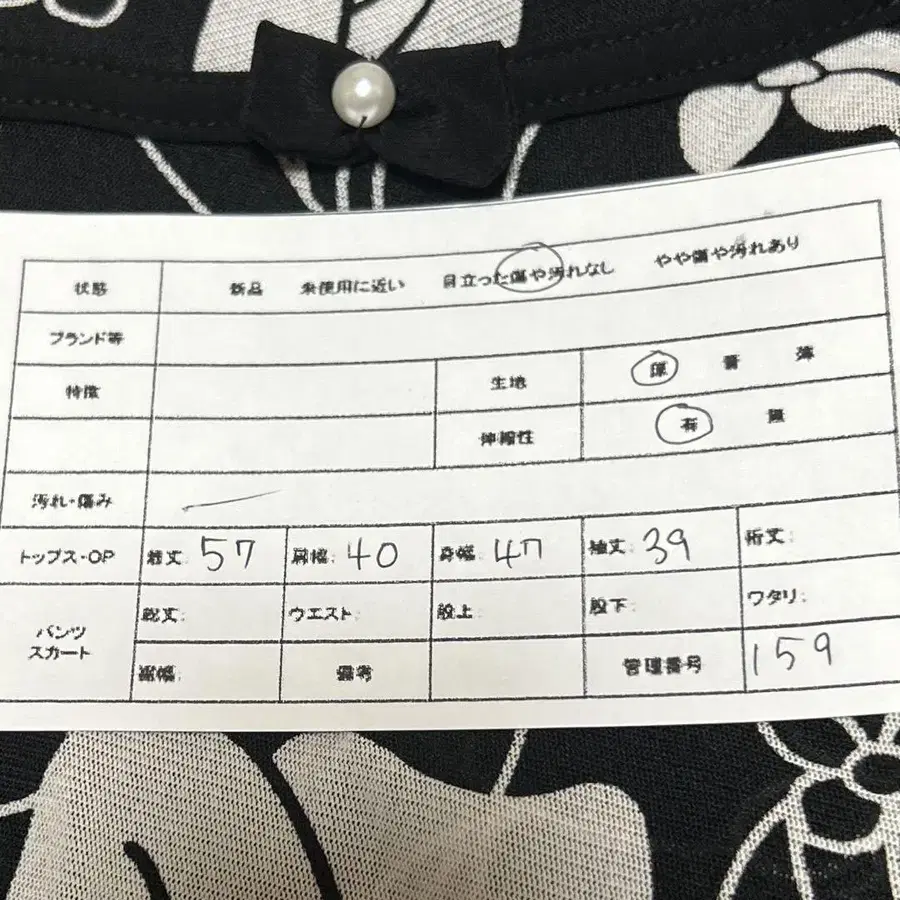 状態 新品 未使用に近い 目立った傷や汚れなし やや傷や汚れあり
ブランド等
特徴 生地 厚 普 薄
伸縮性 有 無
汚れ・傷み
トップス・OP 着丈: 57 肩幅: 40 身幅: 47 袖丈: 39 裄丈:
パンツ スカート 総丈: ウエスト: 股上: 股下: ワタリ:
裾幅: 備考 管理番号 159